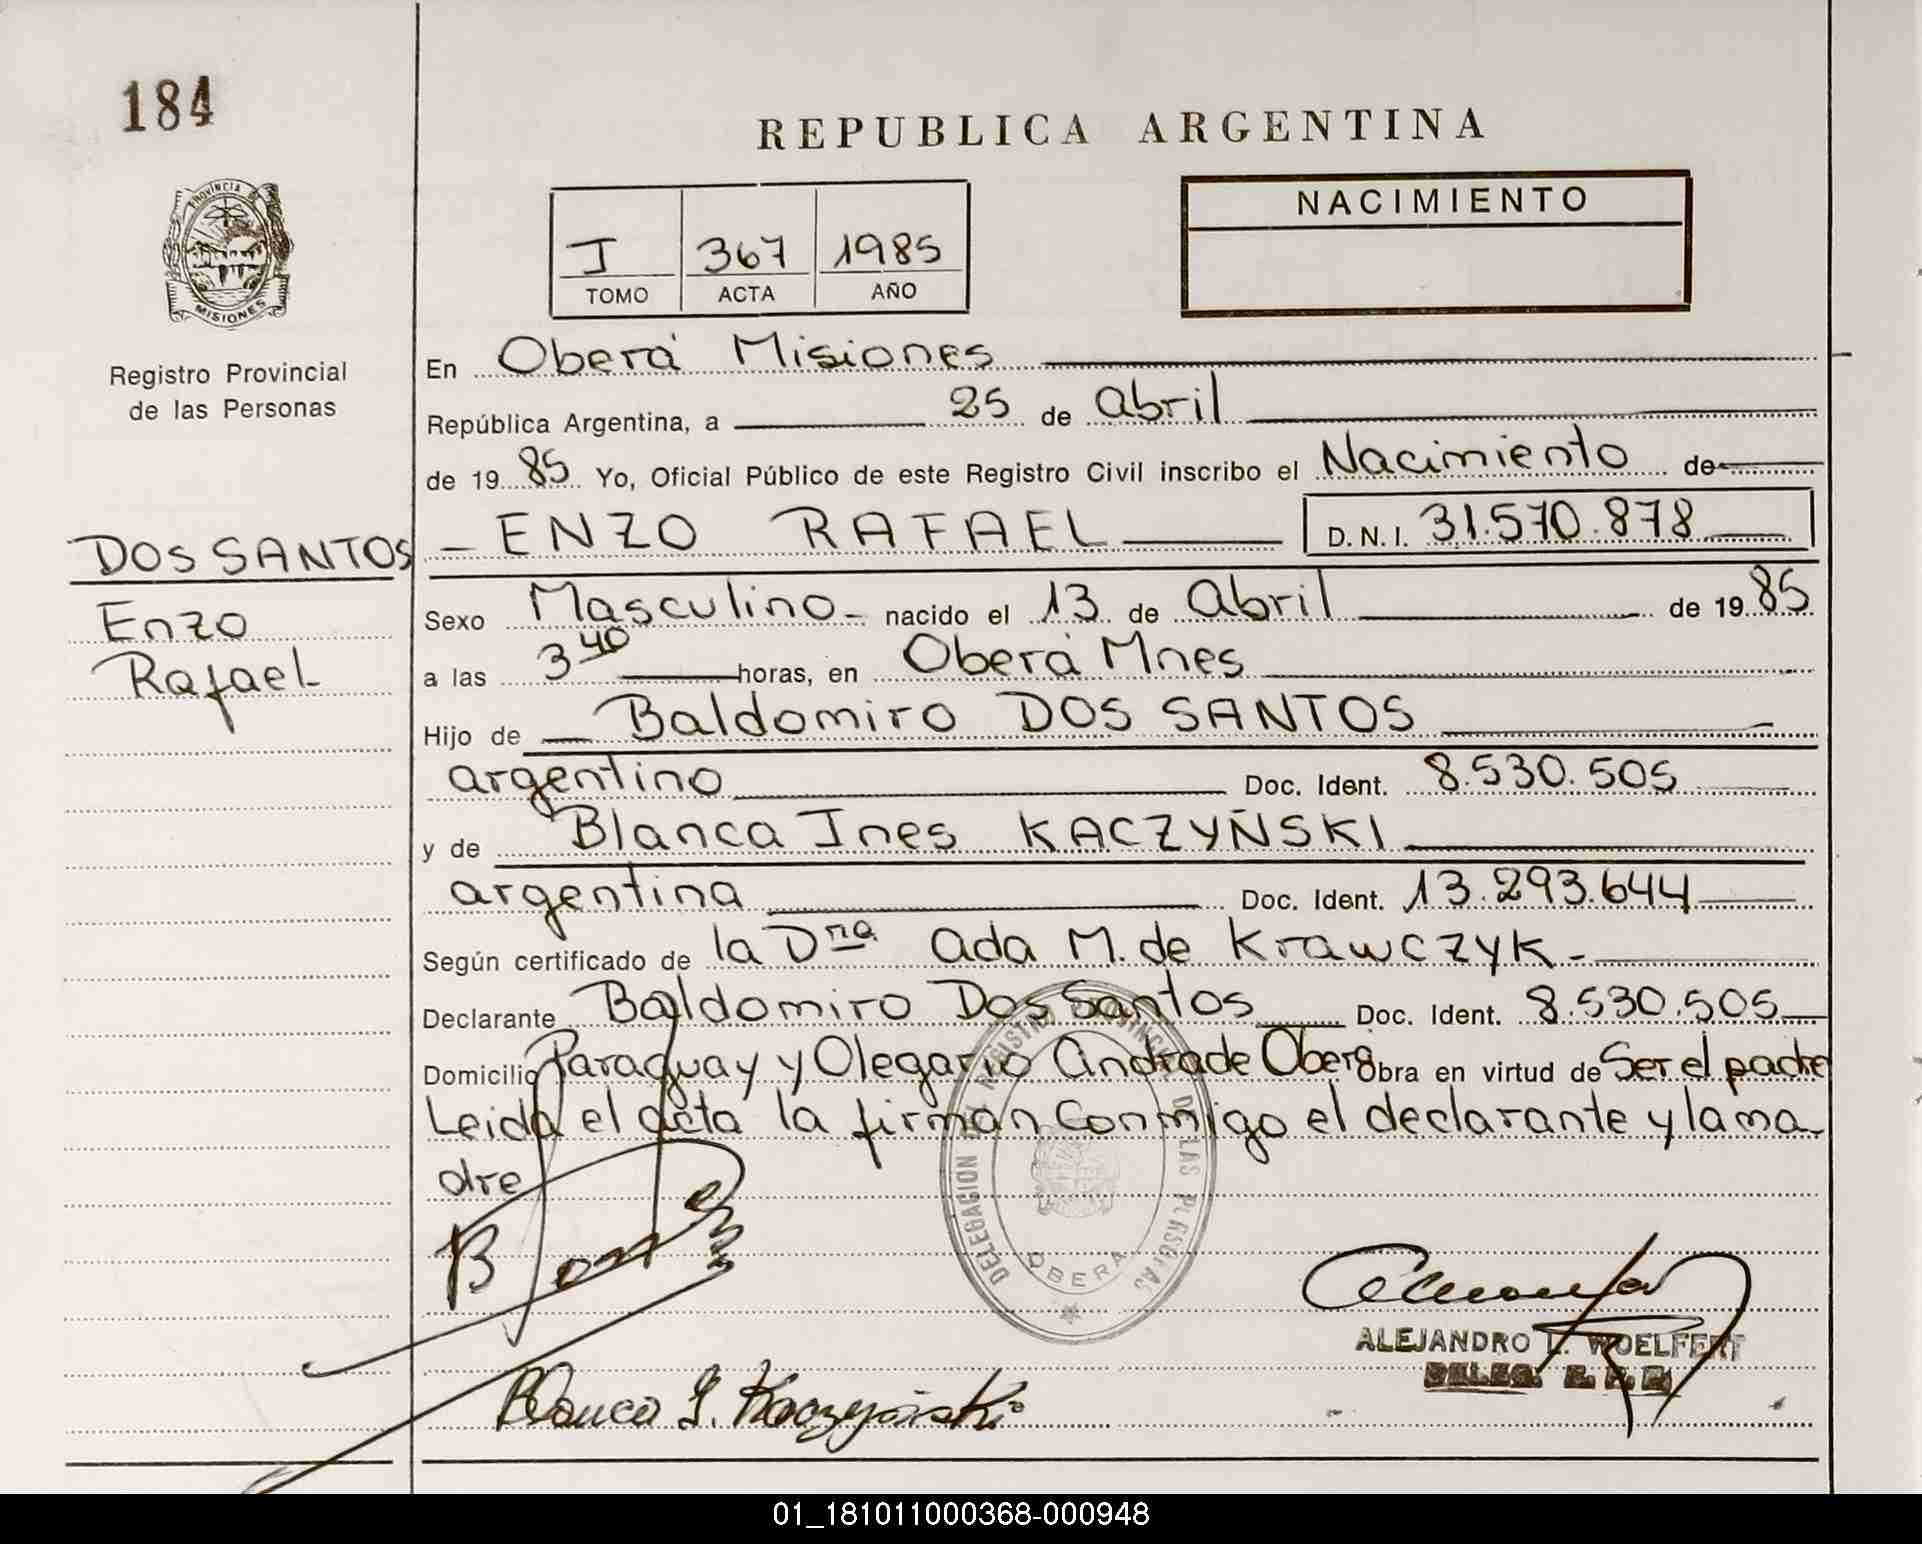 184
REPUBLICA ARGENTINA
PROVINCIA DE
MISIONES
NACIMIENTO
I 367 1985
TOMO ACTA AÑO
Registro Provincial
de las Personas
En Oberá Misiones
República Argentina, a 25 de Abril
de 19 85 Yo, Oficial Público de este Registro Civil inscribo el Nacimiento de
DOS SANTOS
Enzo
Rafael
ENZO RAFAEL D.N.I. 31.570.878
Sexo Masculino nacido el 13 de Abril de 19 85
a las 3 40 horas, en Oberá Mnes
Hijo de Baldomiro DOS SANTOS
argentino Doc. Ident. 8.530.505
y de Blanca Ines KACZYÑSKI
argentina Doc. Ident. 13.293.644
Según certificado de la Dra Ada M. de Krawczyk-
Declarante Baldomiro Dos Santos Doc. Ident. 8.530.505
Domicilio Paraguay y Olegario Andrade Oberá Obra en virtud de Ser el padre
Leida el acta la firman conmigo el declarante y la ma-
dre
DELEGACION DEL REGISTRO PROVINCIAL DE LAS PERSONAS
OBERA
ALEJANDRO L. WOELFERT
DELEG. R. P. P.
Blanca I. Kaczyñski
01_181011000368-000948